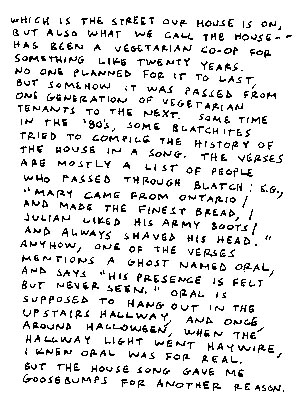 WHICH IS THE STREET OUR HOUSE IS ON,
BUT ALSO WHAT WE CALL THE HOUSE--
HAS BEEN A VEGETARIAN CO-OP FOR
SOMETHING LIKE TWENTY YEARS.
NO ONE PLANNED FOR IT TO LAST,
BUT SOMEHOW IT WAS PASSED FROM
ONE GENERATION OF VEGETARIAN
TENANTS TO THE NEXT. SOME TIME
IN THE '80'S, SOME BLATCHITES
TRIED TO COMPILE THE HISTORY OF
THE HOUSE IN A SONG. THE VERSES
ARE MOSTLY A LIST OF PEOPLE
WHO PASSED THROUGH BLATCH: E.G.,
"MARY CAME FROM ONTARIO/
AND MADE THE FINEST BREAD,/
JULIAN LIKED HIS ARMY BOOTS/
AND ALWAYS SHAVED HIS HEAD."
ANYHOW, ONE OF THE VERSES
MENTIONS A GHOST NAMED ORAL,
AND SAYS "HIS PRESENCE IS FELT
BUT NEVER SEEN." ORAL IS
SUPPOSED TO HANG OUT IN THE
UPSTAIRS HALLWAY, AND ONCE,
AROUND HALLOWEEN, WHEN THE
HALLWAY LIGHT WENT HAYWIRE,
I KNEW ORAL WAS FOR REAL.
BUT THE HOUSE SONG GAVE ME
GOOSEBUMPS FOR ANOTHER REASON.